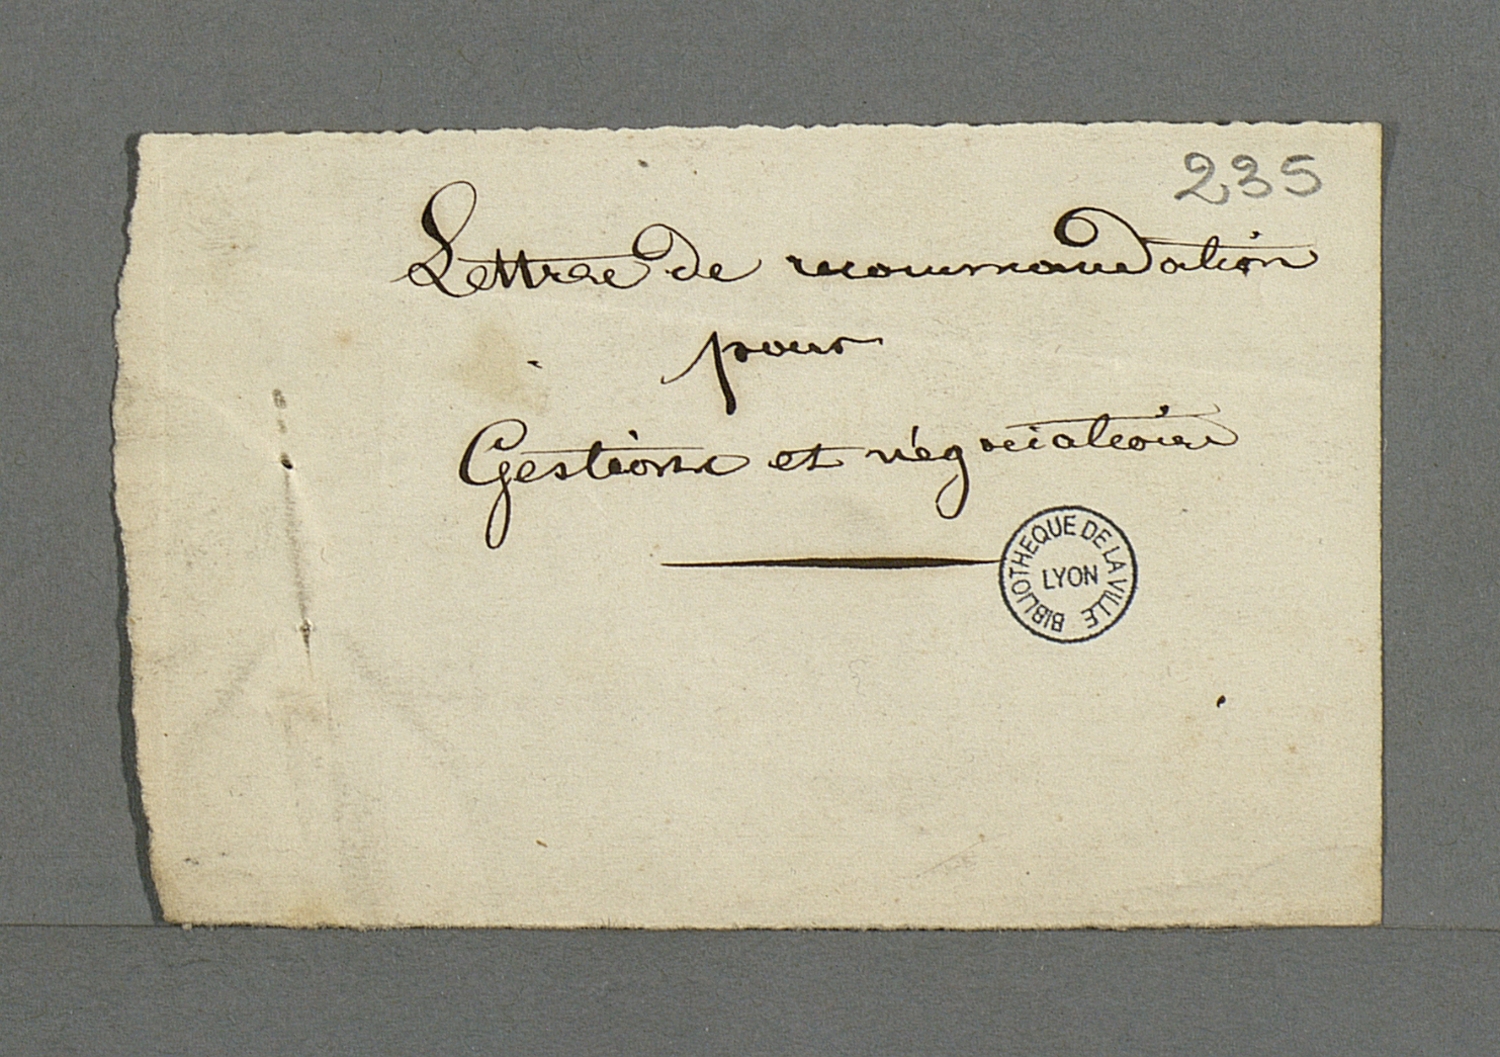 235
Lettres de recommandation
pour
Gestions et négociations
BIBLIOTHEQUE DE LA VILLE
LYON